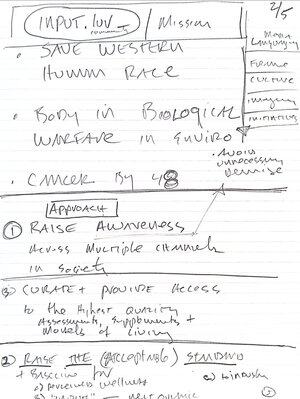 INPUT.luv
Mission
2/5
Media
Language
Frame
Culture
Imagery
Initiatives
• SAVE WESTERN
HUMAN RACE
• BODY IN BIOLOGICAL
WARFARE IN ENVIRO
• Avoid
unnecessary
demise
• CANCER BY 48
APPROACH
① RAISE AWARENESS
ACROSS MULTIPLE channels
in society
③ CURATE + PROVIDE ACCESS
to the HIGHEST QUALITY
Assessments, Supplements +
Models of Living
② RAISE THE (ACCEPTABLE) STANDARD
+ BASELINE for
a) Awareness wellness
b)
c)